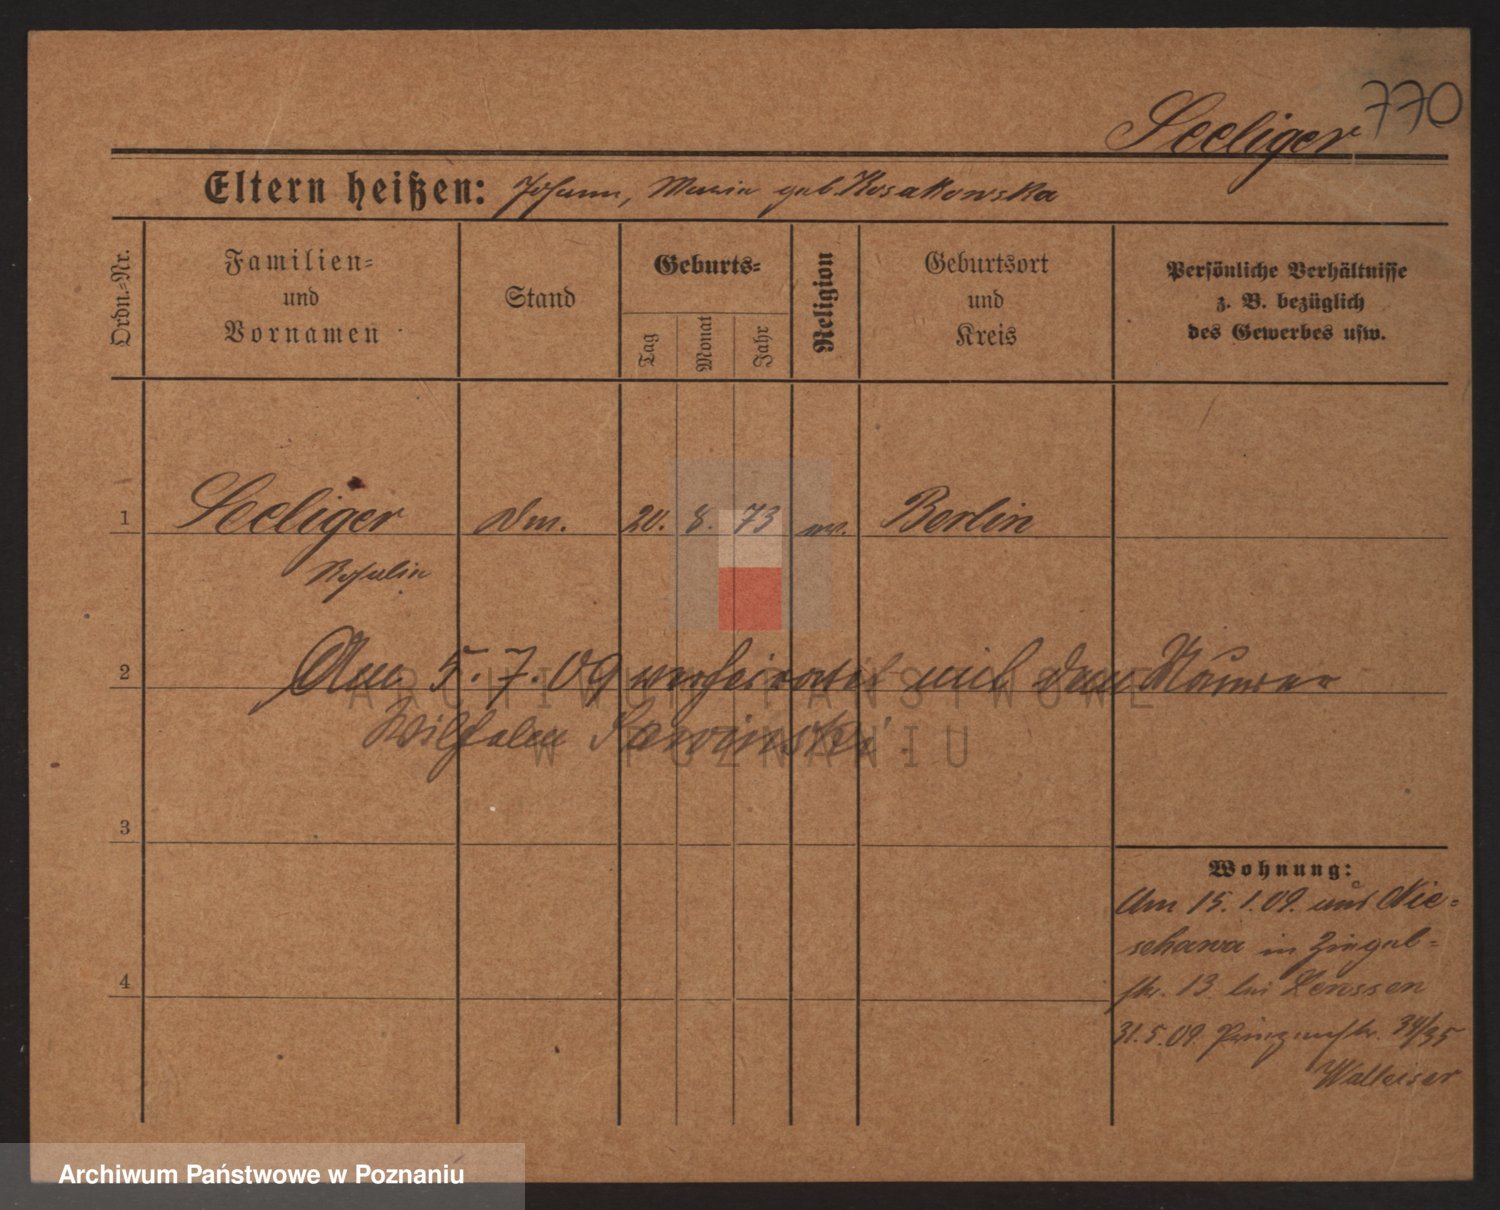 770
Seeliger
Eltern heißen: Johann, Maria geb. Kosakowska
Ordn.-Nr.
Familien-
und
Vornamen
Stand
Geburts-
Tag
Monat
Jahr
Religion
Geburtsort
und
Kreis
Persönliche Verhältnisse
z. B. bezüglich
des Gewerbes usw.
1 Seeliger 20. 8. 73 Berlin
Rosalin
2 Am 5.7.09 verheiratet mit dem Maurer
Wilhelm Sawinski.
ARCHIWUM PAŃSTWOWE
W POZNANIU
3
Wohnung:
Am 15.1.09. aus Nie-
schawa in Ziegel-
str. 13 bei Lenssen
4
31.5.09. Prinzenstr. 34/35
Walleiser
Archiwum Państwowe w Poznaniu